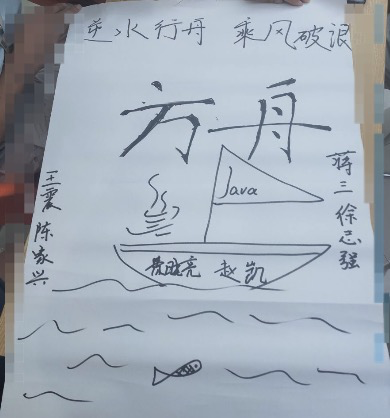 逆水行舟 乘风破浪
方舟
Java
王震 陈家兴
蒋三 徐志强
晓亮 赵凯